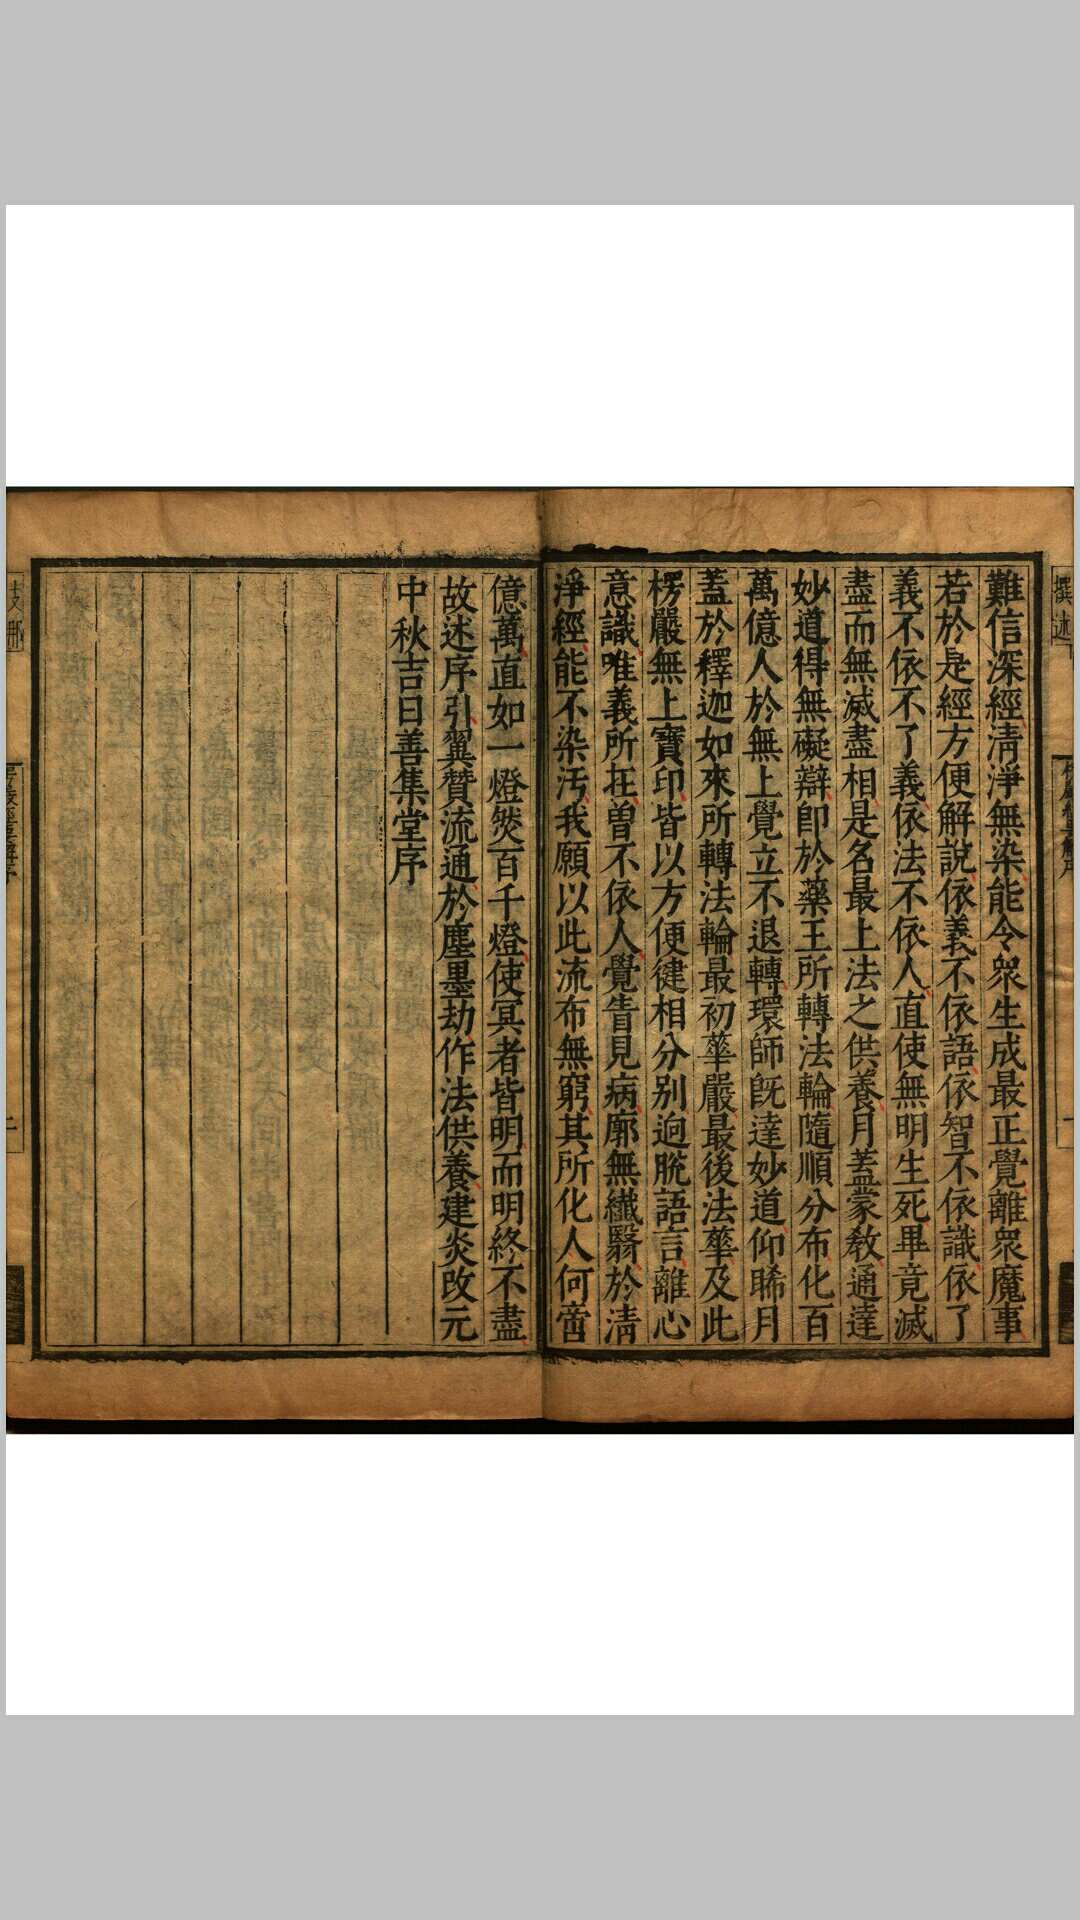 撰述
難信深經淸淨無染能令衆生成最正覺離眾魔事
若於是經方便解說依義不依語依智不依識依了
義不依不了義依法不依人直使無明生死畢竟滅
盡而無滅盡相是名最上法之供養月蓋蒙敎通達
妙道得無礙辯即於藥王所轉法輪隨順分布化百
萬億人於無上覺立不退轉環師旣達妙道仰晞月
蓋於釋迦如來所轉法輪最初華嚴最後法華及此
楞嚴無上寶印皆以方便徤相分别逈脫語言離心
意識唯義所在曽不依人覺眚見病廓無纖翳於淸
淨經能不染汚我願以此流布無窮其所化人何啻
億萬直如一燈燃百千燈使冥者皆明而明終不盡
故述序引翼贊流通於塵墨劫作法供養建炎改元
中秋吉日善集堂序